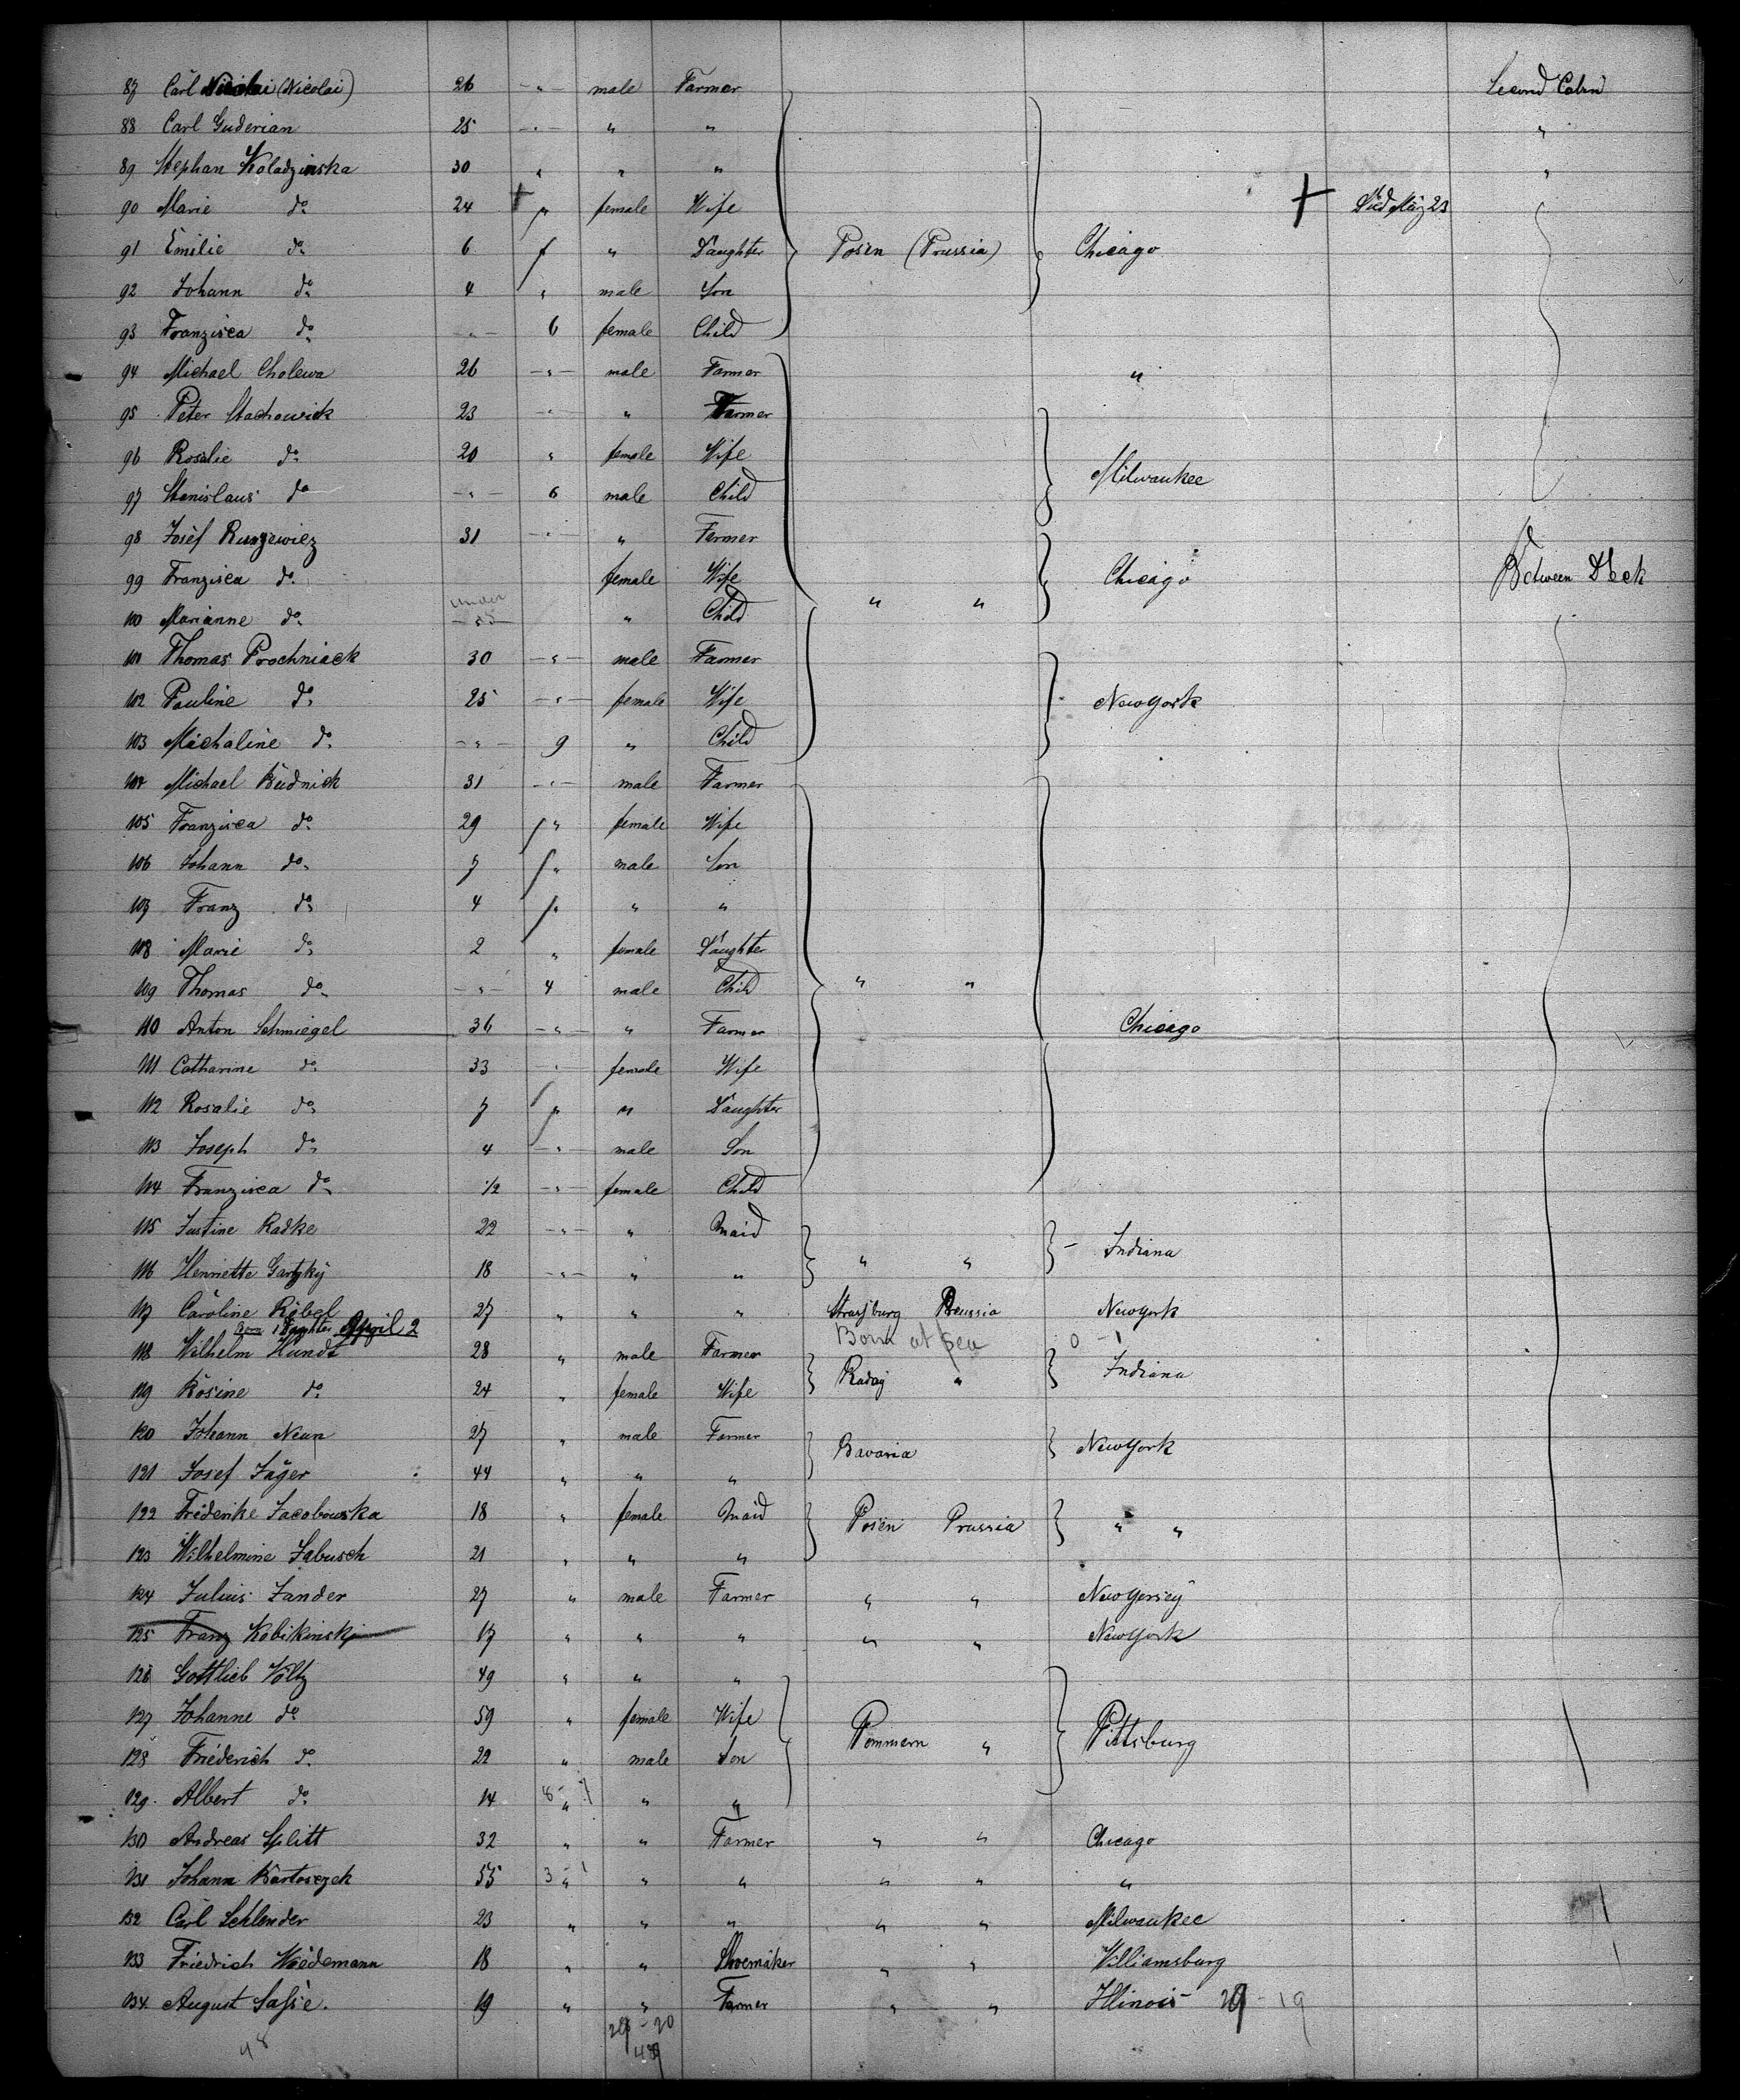 87 Carl Nicolai (Nicolai) 26 - " - male Farmer Second Cabin
88 Carl Guderian 25 - " - " " "
89 Stephan Koladzinska 30 " " " "
90 Marie do 24 + " female Wife + Died May 23
91 Emilie do 6 " " Daughter Posen (Prussia) Chicago
92 Johann do 4 " male Son
93 Franzisca do - " - 6 female Child
94 Michael Cholewa 26 - " - male Farmer "
95 Peter Stachowick 23 - " - " Farmer
96 Rosalie do 20 " female Wife Milwaukee
97 Stanislaus do - " - 6 male Child
98 Josef Runzewiez 31 - " - " Farmer
99 Franzisca do female Wife " " Chicago Between Deck
100 Marianne do under - " - " Child
101 Thomas Prochniack 30 - " - male Farmer
102 Pauline do 25 - " - female Wife New York
103 Michaline do - " - 9 " Child
104 Michael Budnick 31 - " - male Farmer
105 Franzisca do 29 " female Wife
106 Johann do 7 " male Son
107 Franz do 4 " " "
108 Marie do 2 " female Daughter
109 Thomas do - " - 4 male Child " "
110 Anton Schmiegel 36 - " - " Farmer Chicago
111 Catharine do 33 - " - female Wife
112 Rosalie do 7 " " Daughter
113 Joseph do 4 - " - male Son
114 Franzisca do 1/2 - " - female Child
115 Justine Radke 22 - " - " Maid " " - Indiana
116 Henriette Gartzky 18 - " - " "
117 Caroline Röbel 27 " " " Strasburg Prussia New York
Born 1 Daughter April 2 Born at Sea 0 - 1
118 Wilhelm Hundt 28 " male Farmer
119 Rosine do 24 " female Wife Radzij " Indiana
120 Johann Neun 27 " male Farmer Bavaria New York
121 Josef Jäger 44 " " "
122 Friderike Jacobowska 18 " female Maid Posen Prussia " "
123 Wilhelmine Jabusch 21 " " "
124 Julius Zander 27 " male Farmer " " New Yersey
125 Franz Kobikinski 17 " " " " " New York
126 Gottlieb Völtz 49 " " "
127 Johanne do 59 " female Wife Pommern " Pittsburg
128 Friederich do 22 " male Son
129 Albert do 14 8 - 1 " " "
130 Andreas Splitt 32 " " Farmer " " Chicago
131 Johann Bartoszek 55 3 - 1 " " " " " "
132 Carl Schlender 23 " " " " " Milwaukee
133 Friedrich Wiedemann 18 " " Shoemaker " " Williamsburg
134 August Saßie. 19 " " Farmer " " Illinois 29 - 19
48 28 - 20
48